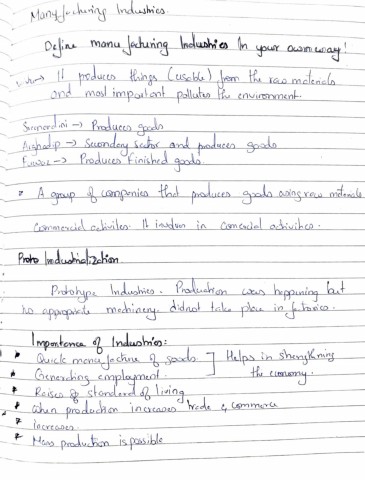 Manufacturing Industries.
Define manufacturing Industries In your own way!
→ It produces things (usable) from the raw materials
and most important pollutes the environment.
→ Produces goods
→ Secondary sector and produces goods
→ Produces finished goods.
* A group of companies that produces goods using raw materials
Commercial activities. It involves in comercial activities.
Proto Industrialization
Prototype Industries. Production was happening but
no appropriate machinery. didnot take place in fatories.
Importance of Industries:
* Quick manufacture of goods ] Helps in strengthning
* Generating employment. the economy.
* Raises of standard of living
* When production increases trade & commerce
* Increases.
* Mass production is possible